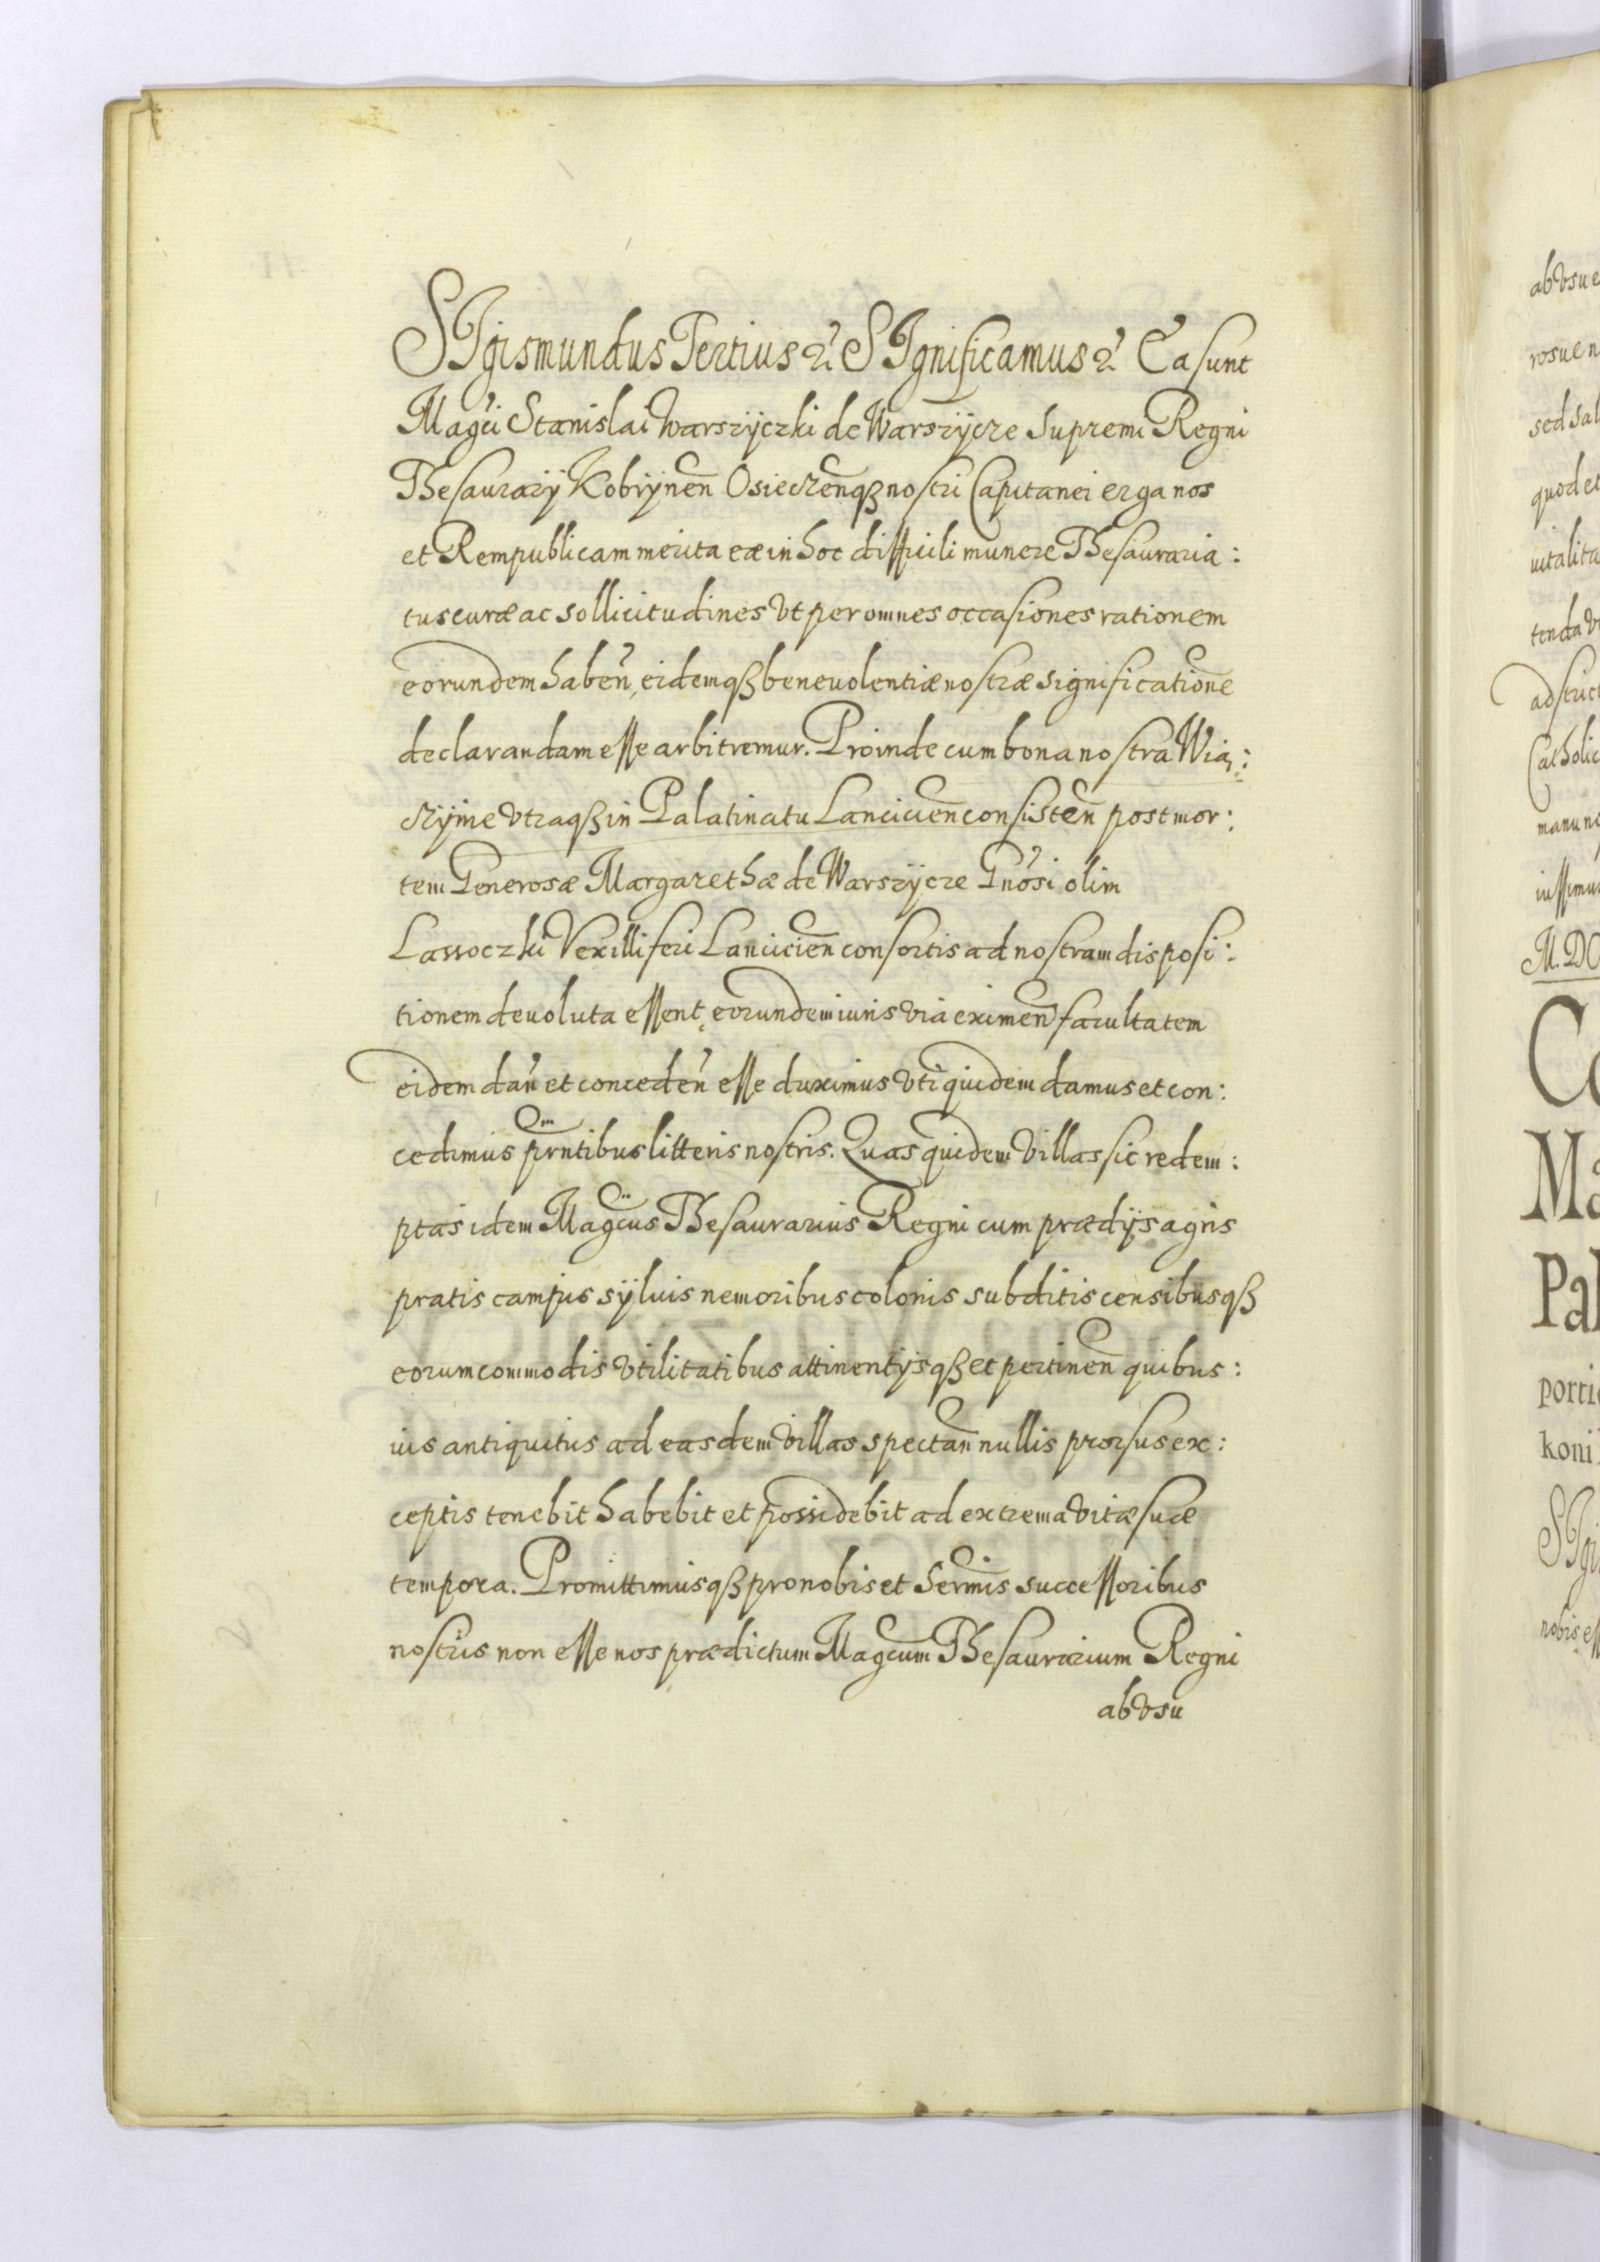 SIgismundus Tertius &c SIgnificamus &c Ea sunt
Magci Stanislai Warszyczki de Warszycze Supremi Regni
Thesaurarÿ Kobrÿnen Osieczenqȝ nostri Capitanei erga nos
et Rempublicam merita eæ in hoc difficili munere Thesauraria:
tus curæ ac sollicitudines vt per omnes occasiones rationem
eorundem haben, eidemqȝ beneuolentiæ nostræ significatione
declarandam esse arbitremur. Proinde cum bona nostra Wia:
czÿme vtraqȝ in Palatinatu Lancicien consisten post mor:
tem Generosæ Margarethæ de Warszÿcze Gnosi olim
Lassoczki Vexilliferi Lancicien consortis ad nostram disposi:
tionem deuoluta essent, eorundem iuris via eximen facultatem
eidem dan et conceden esse duximus vti quidem damus et con:
cedimus prntibus litteris nostris. Quas quidem villas sic redem:
ptas idem Magcus Thesaurarius Regni cum prædÿs agris
pratis campis sÿluis nemoribus colonis subditis censibusqȝ
eorum commodis vtilitatibus attinentÿsqȝ et pertinen quibus:
uis antiquitus ad easdem villas spectan nullis prorsus ex:
ceptis tenebit habebit et possidebit ad extrema vitæ suæ
tempora. Promittimusqȝ pro nobis et Sermis successoribus
nostris non esse nos prædictum Magcum Thesaurarium Regni
ab vsu
ab vsu e
sed sal
quod et
vitalita
tenda v
adstrict
Catholic
manu no
iussimus
M. DC
Co
Ma
Pal
portio
koni
SIgi
nobis ess